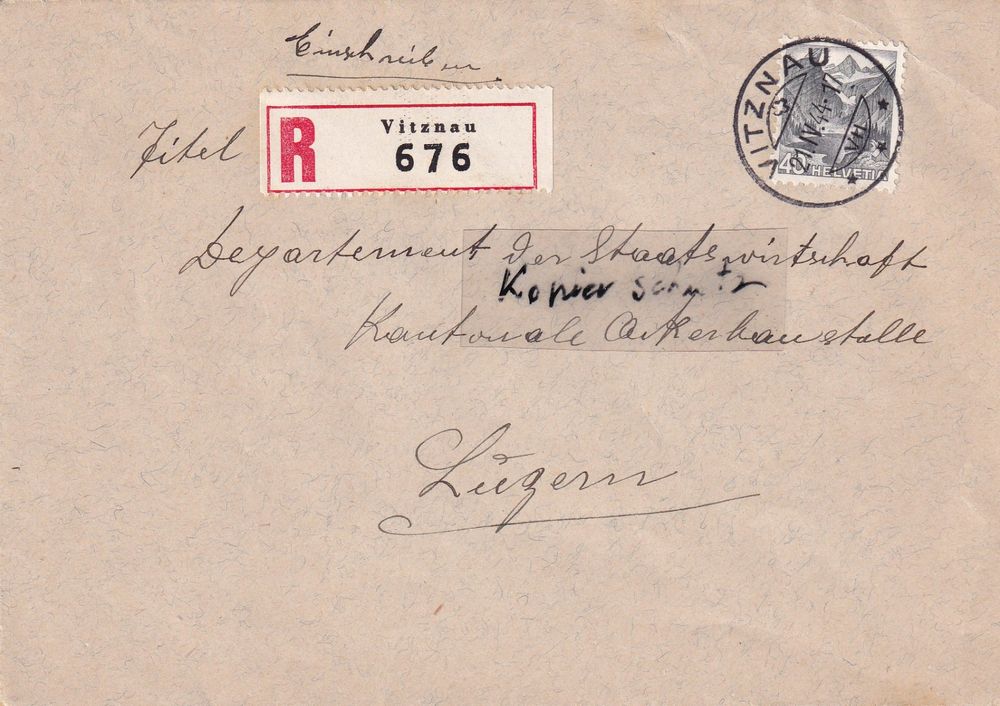 Einschreiben
Titel
R
Vitznau
676
VITZNAU
21.IV.44-17
40 HELVETIA
Departement der Staatswirtschaft
Kopier Schutz
Kantonale Ackerbaustelle
Luzern